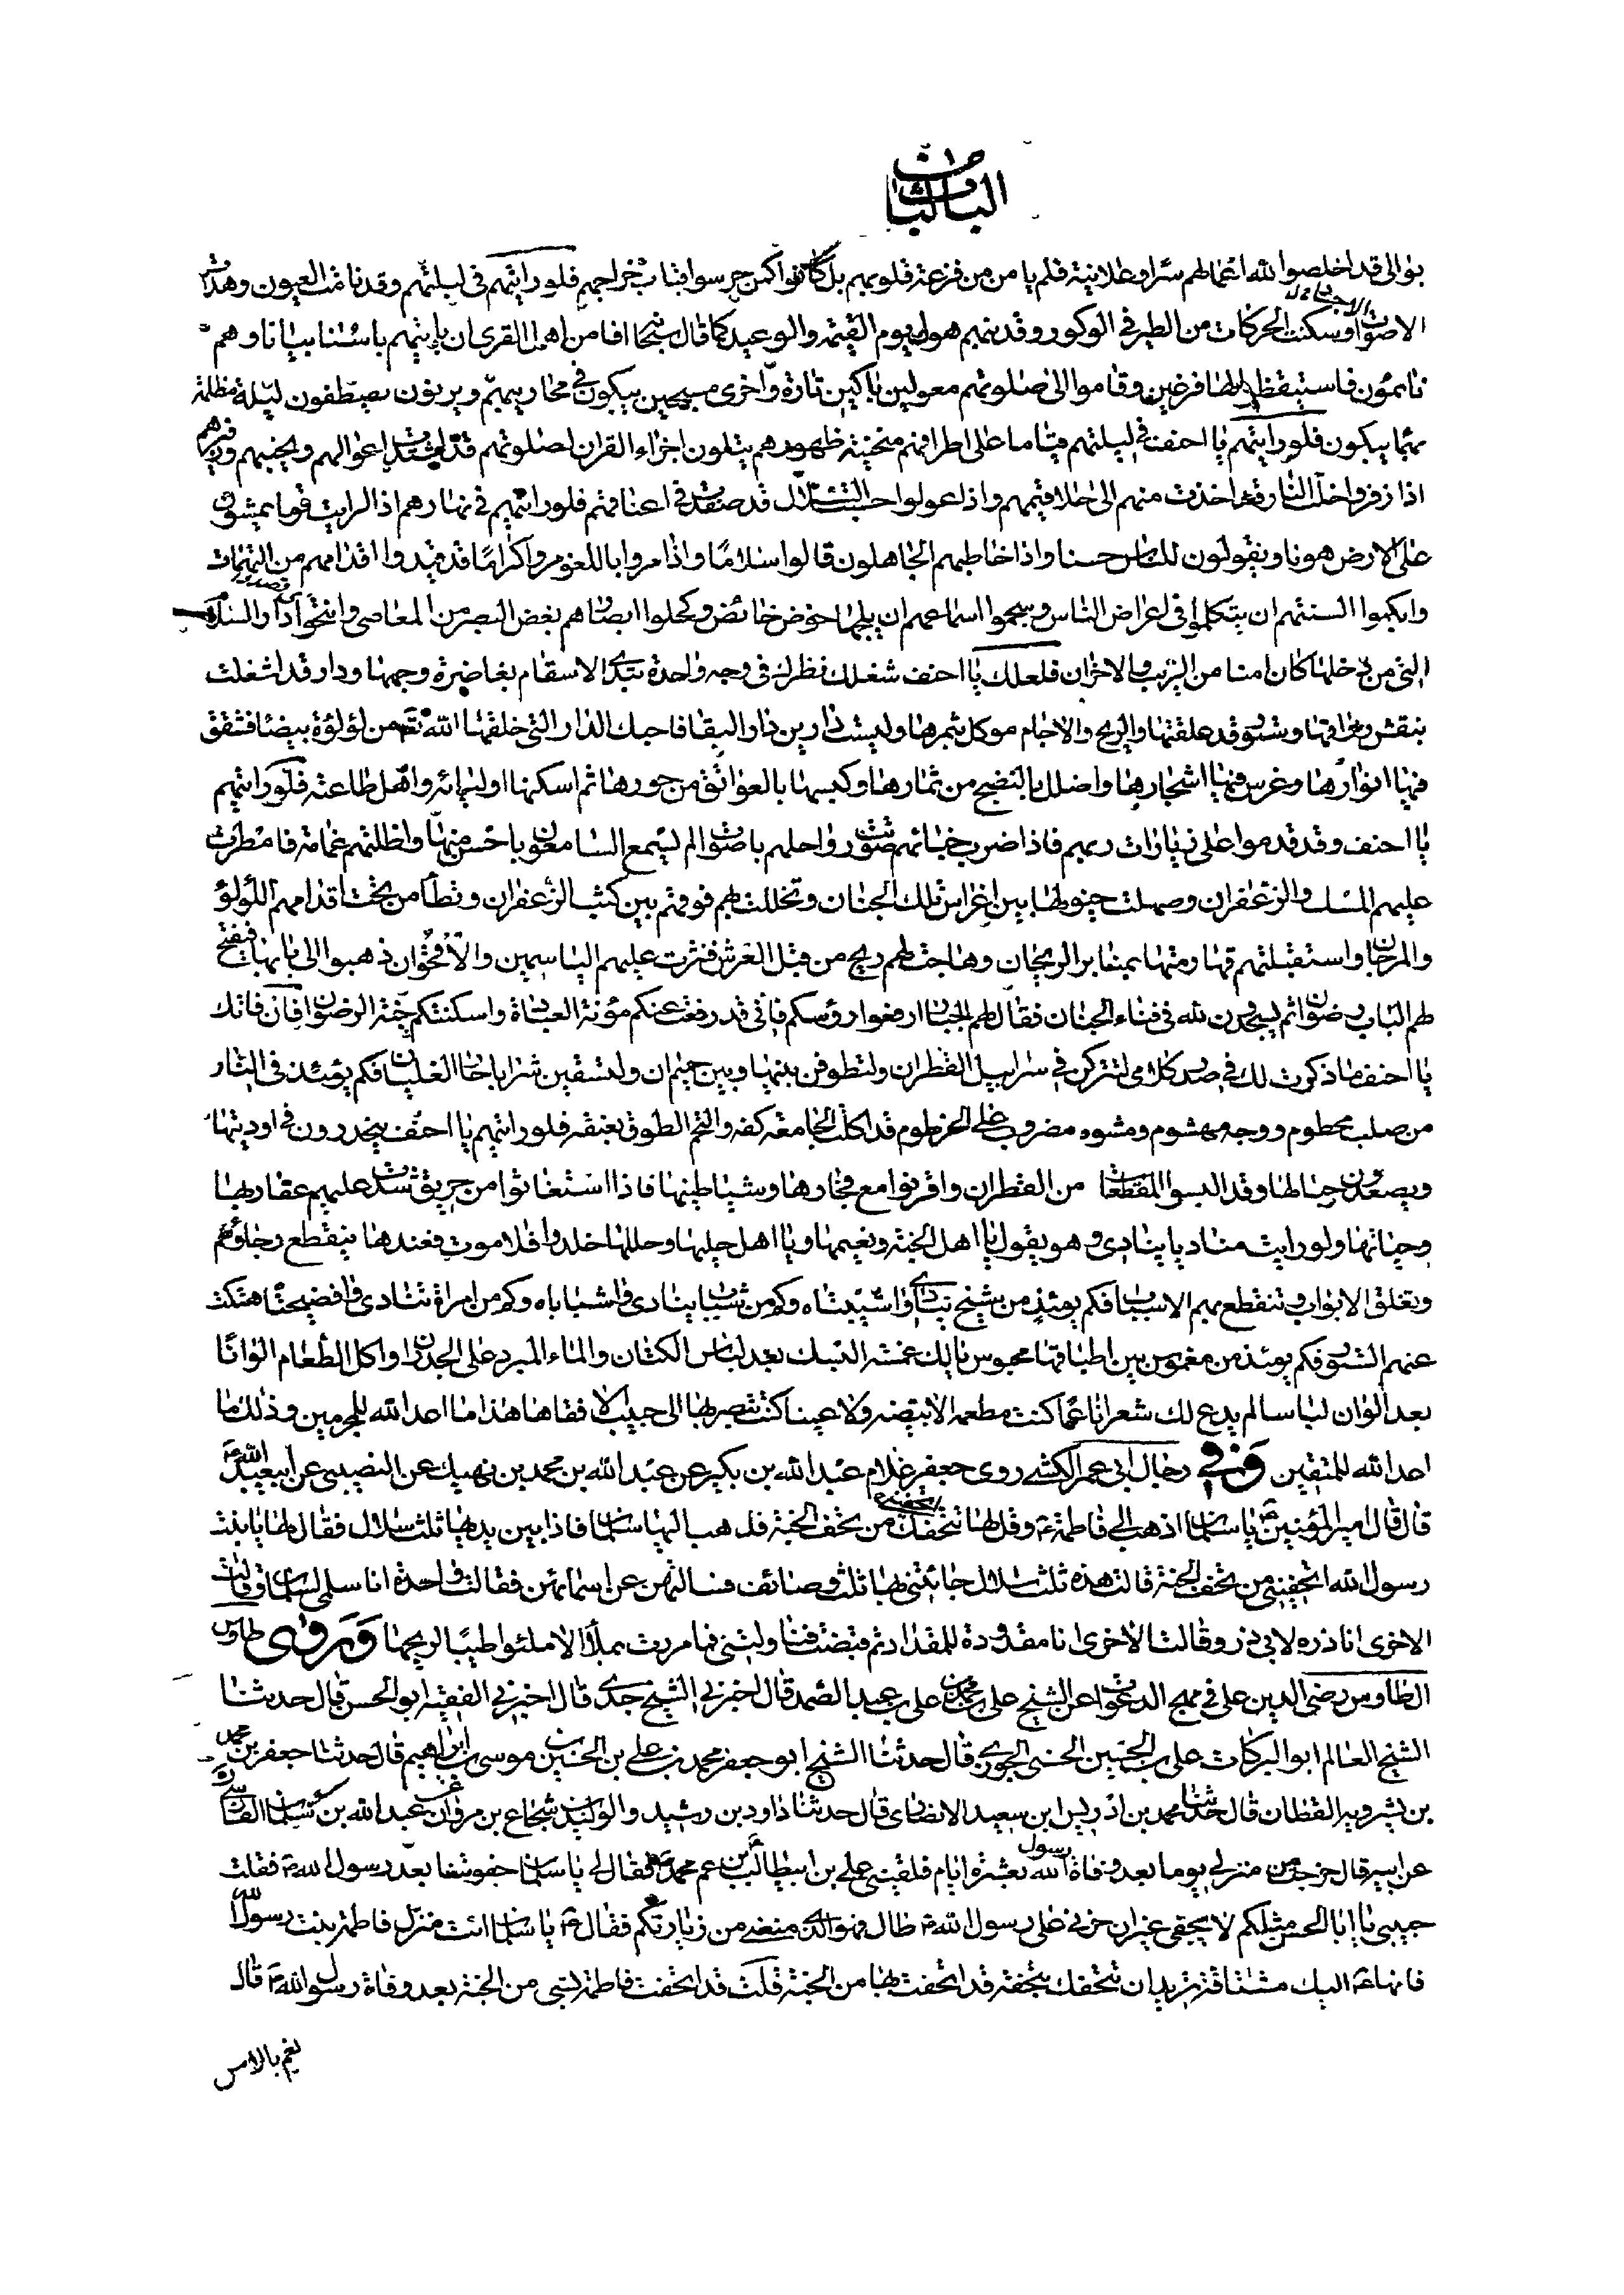 الباب الثالث
بوالى قد اخلصوا لله اعمالهم سرا وعلانية فلم يامن من فزعة قلوبهم بل كانوا كمن حرسوا قباب خراجهم فلو رايتهم فى ليلتهم وقد نامت العيون وهدات
الاصوات وسكنت الحركات من الطير فى الوكور وقد نبههم هول يوم القيمة والوعيد كما قال سبحانه افامن اهل القرى ان ياتيهم باسنا بياتا وهم
نائمون فاستيقظوا لها فزعين وقاموا الى صلوتهم معولين باكين تارة واخرى مسبحين يبكون فى محاريبهم ويرنون يصطفون ليلة مظلمة
بهما يبكون فلو رايتهم يا احنف فى ليلتهم قياما على اطرافهم منحنية ظهورهم يتلون اجزاء القران لصلوتهم قد اشتدت اعوالهم ونحيبهم وزفيرهم
اذا زفروا خلت النار قد اخذت منهم الى حلاقيمهم واذا عولوا حسبت السلاسل قد صفدت فى اعناقهم فلو رايتهم فى نهارهم اذا لرايت قوما يمشون
على الارض هونا ويقولون للناس حسنا واذا خاطبهم الجاهلون قالوا سلاما واذا مروا باللغو مروا كراما قد قيدوا اقدامهم من التهمات
وابكموا السنتهم ان يتكلموا فى اعراض الناس وسجموا اسماعهم ان يلجها خوض خائض وكحلوا ابصارهم بغض البصر من المعاصى وانتحوا دار السلام
التى من دخلها كان امنا من الريب والاحزان فلعلك يا احنف شغلك نظرك فى وجه واحدة تبدى الاسقام بغاضرة وجهها ودار قد اشغلت
بنقش رواقها وستور قد علقتها والريح والاجام موكل بثمرها وليست دارين دار البقا فاحبك الدار التى خلقها الله تعا من لؤلؤة بيضا فشقق
فيها انوارها وغرس فيها اشجارها واظلل بالنضج من ثمارها وكبسها بالعواتق من حورها ثم اسكنها اوليائه واهل طاعته فلو رايتهم
يا احنف وقد قدموا على زيادات ربهم فاذا ضربت خبائهم صوتت رواحلهم باصوات لم يسمع السامعون باحسن منها واظلتهم غمامة فامطرت
عليهم المسك والزعفران وصهلت خيولها بين اغراس تلك الجنان وتخللت بهم نوقهم بين كثب الزعفران وتطأ من تحت اقدامهم اللؤلؤ
والمرجان واستقبلتهم قهارمتها بمنابر الريحان وهاجت لهم ريح من قبل العرش فنثرت عليهم الياسمين والاقحوان ذهبوا الى بابها فيفتح
لهم الباب رضوان ثم يسجدون لله فى فناء الجنان فقال لهم الجبار ارفعوا رؤسكم فانى قد رفعت عنكم مؤنة العبادة واسكنتكم جنة الرضوان فان فاتك
يا احنف ما ذكرت لك فى صدر كلامى لتتركن فى سرابيل القطران ولتطوفن بينها وبين حميم ان ولتسقين شرابا حار الغليان فكم يومئذ فى النار
من صلب محطوم ووجه مهشوم ومشوه مضروب على الخرطوم قد اكلت الجامعة كفه والتحم الطوق بعنقه فلو رايتهم يا احنف ينحدرون فى اوديتها
ويصعدون جبالها وقد البسوا المقطعات من القطران واقرنوا مع فجارها وشياطينها فاذا استغاثوا من حريق شدت عليهم عقاربها
وحياتها ولو رايت مناديا ينادى وهو يقول يا اهل الجنة ونعيمها ويا اهل حليها وحللها خلدوا فلا موت فعندها ينقطع رجاؤهم
وتغلق الابواب وتنقطع بهم الاسباب فكم يومئذ من شيخ ينادى واشيبتاه وكم من شاب ينادى واشباباه وكم من امراة تنادى وافضيحتاه هتكت
عنهم الستور فكم يومئذ من مغموس بين اطباقها محبوس يا لك غمسة البسك بعد لباس الكتان والماء المبرد على الجدران واكل الطعام الوانا
بعد الوان لباسا لم يدع لك شعرا ناعما كنت مطعمه الا بيضه ولا عينا كنت تبصر بها الى حبيب الا فقاها هذا ما اعد الله للمجرمين وذلك ما
اعد الله للمتقين وفى رجال ابى عمر الكشى روى جعفر غلام عبد الله بن بكير عن عبد الله بن محمد بن نهيك عن النصيبى عن ابيعبد الله ع
قال قال امير المؤمنين ع يا سلمان اذهب الى فاطمة ع وقل لها تتحفك من تحف الجنة فذهب اليها سلمان فاذا بين يديها ثلث سلال فقال لها يا بنت
رسول الله اتحفينى من تحف الجنة قالت هذه ثلث سلال جائتنى بها ثلث وصائف فسالتهن عن اسمائهن فقالت واحدة انا سلمى لسلمان وقالت
الاخرى انا ذره لابى ذر وقالت الاخرى انا مقدودة للمقداد ثم قبضت فناولتنى فما مررت بملأ الا ملئوا طيبا لريحها وروى طاوس
الطاوس رضى الدين على فى مهج الدعوات عن الشيخ على بن محمد بن على بن عبد الصمد قال اخبرنى الشيخ جدى قال اخبرنى الفقيه ابو الحسن قال حدثنا
الشيخ العالم ابو البركات على بن الحسين الحسنى الجورى قال حدثنا الشيخ ابو جعفر محمد بن على بن الحسين بن موسى بن ابراهيم قال حدثنا جعفر بن محمد
بن بشرويه القطان قال حدثنا محمد بن ادريس ابن سعيد الانصارى قال حدثنا داود بن رشيد والوليد بن شجاع بن مروان عن عبد الله بن سلمان الفارسى
عن ابيه قال خرجت من منزلى يوما بعد وفاة رسول الله بعشرة ايام فلقينى على بن ابيطالب ع ابن عم محمد ص فقال لى يا سلمان جفوتنا بعد رسول الله ص فقلت
حبيبى يا ابا الحسن مثلكم لا يجفى غير ان حزنى على رسول الله ص طال فهو الذى منعنى من زيارتكم فقال ع يا سلمان ائت منزل فاطمة بنت رسول الله
فانها ع اليك مشتاقة تريد ان تتحفك بتحفة قد اتحفت بها من الجنة قلت قد اتحفت فاطمة بشى من الجنة بعد وفاة رسول الله ص قال
نعم بالامس